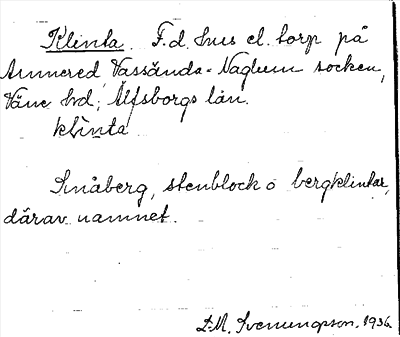 Klinta. F.d. hus el. torp på
Annered, Vassända-Naglum socken,
Väne hd; Älfsborgs län.
klìnta
Småberg, stenblock o bergklintar,
därav namnet.
D.M. Svenungson. 1936.